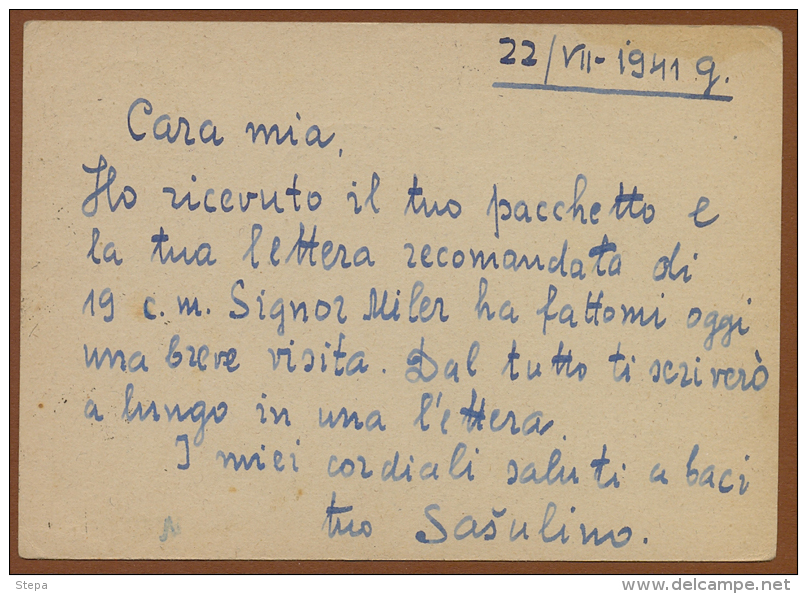 22/VII-1941 g.
Cara mia,
Ho ricevuto il tuo pacchetto e
la tua lettera recomandata di
19 c.m. Signor Miler ha fattomi oggi
una breve visita. Dal tutto ti scriverò
a lungo in una l'ettera.
I miei cordiali saluti a baci
tuo Sašulino.
Stepa
www.delcampe.net